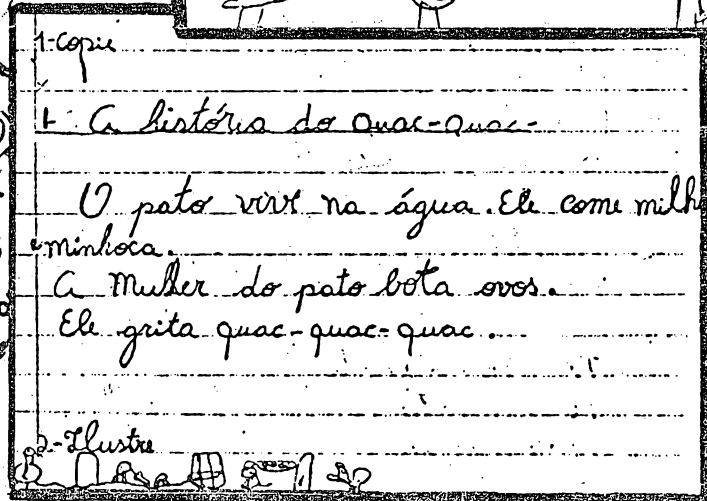 1-Copie
1- A história do Quac-Quac-
O pato vive na água. Ele come milh
e minhoca.
A Mulher do pato bota ovos.
Ele grita quac-quac-quac.
2-Ilustre